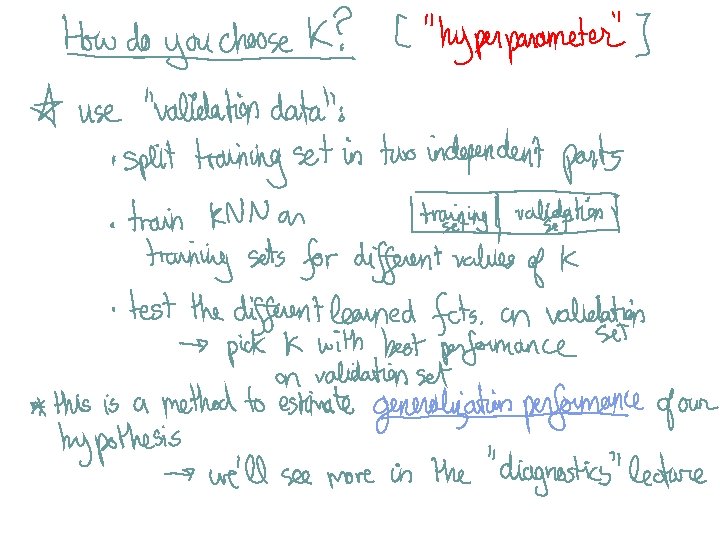 How do you choose K? ["hyperparameter"]
☆ use "validation data":
· split training set in two independent parts
· train KNN on
training set | validation set
training sets for different values of K
· test the different learned fcts. on validation set
→ pick K with best performance
on validation set
* this is a method to estimate generalization performance of our
hypothesis
→ we'll see more in the "diagnostics" lecture